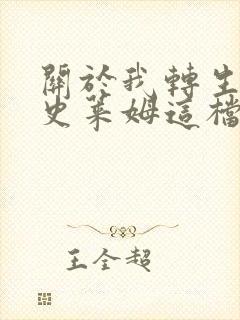 關於我轉生
史萊姆這檔
王全超